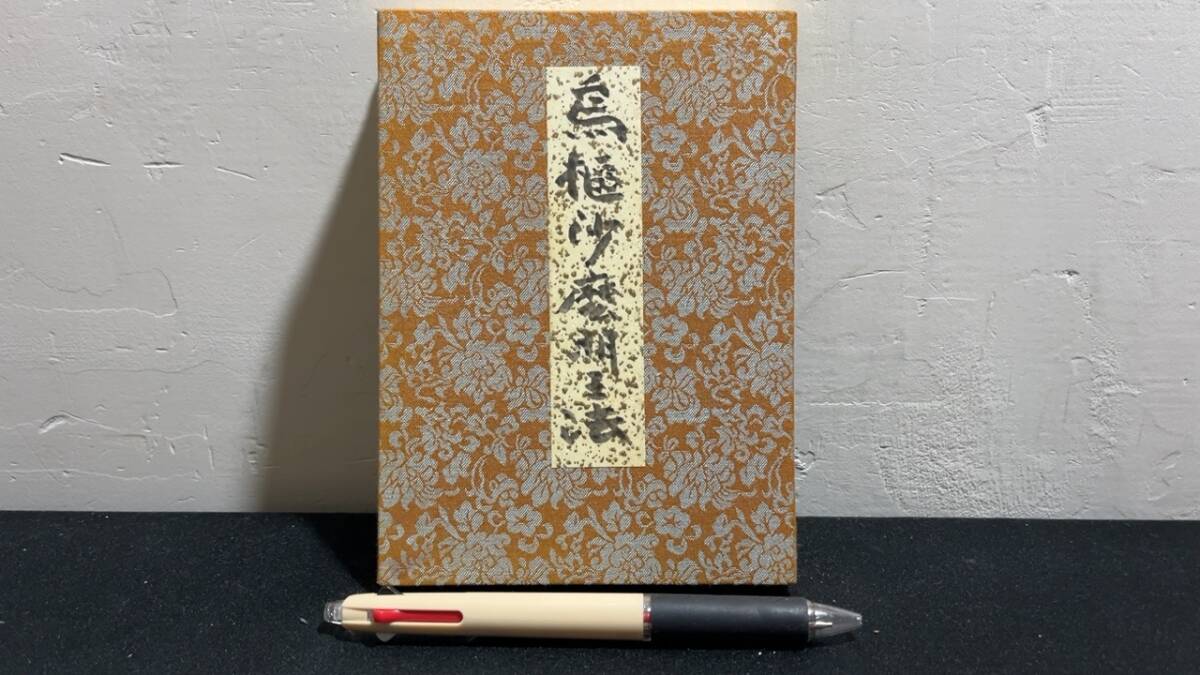 烏樞沙麼明王法